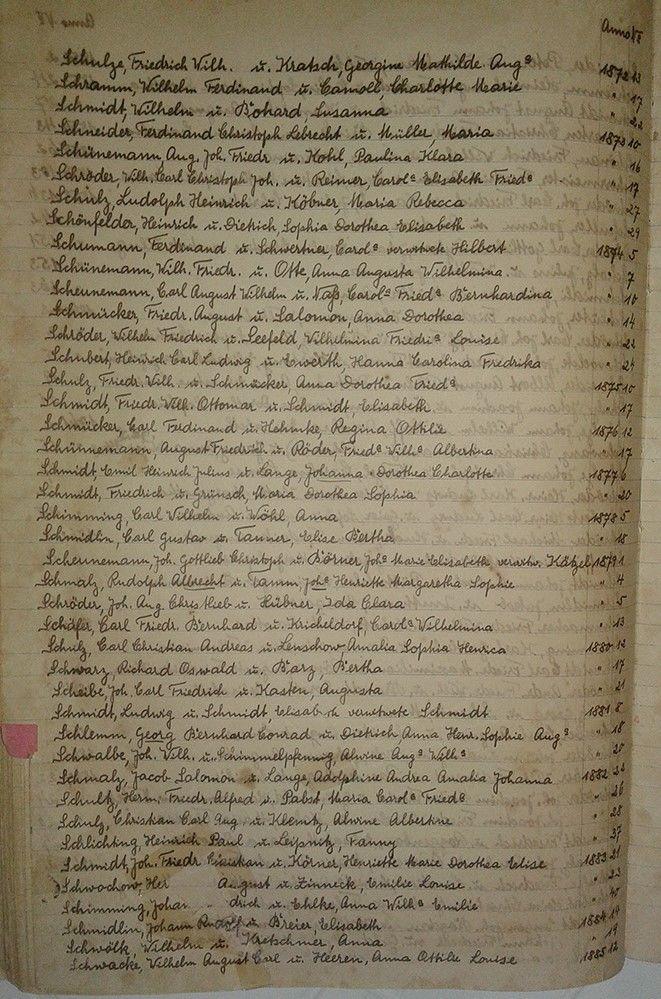 Anno №
Schulze, Friedrich Wilh. u. Kratsch, Georgine Mathilde Augᵃ 1872 13
Schramm, Wilhelm Ferdinand u. Camoll Charlotte Marie " 17
Schmidt, Wilhelm u. Bohard, Susanna " 22
Schneider, Ferdinand Christoph Lebrecht u. Müller Maria 1873 10
Schünemann, Aug. Joh. Friedr. u. Kohl, Paulina Klara " 16
Schröder, Wilh. Carl Christoph Joh. u. Reimer, Carolᵃ Elisabeth Friedᵃ " 17
Schulz, Ludolph Heinrich u. Höbner, Maria Rebecca " 27
Schönfelder, Heinrich u. Dietrich, Sophia Dorothea Elisabeth " 29
Schumann, Ferdinand u. Schwertner, Carolᵃ verwitwete Hilbert 1874 5
Schünemann, Wilh. Friedr. u. Otte, Anna Augusta Wilhelmina " 7
Scheunemann, Carl August Wilhelm u. Naß, Carolᵃ Friedᵃ Bernhardina " 10
Schmücker, Friedr. August u. Salomon, Anna Dorothea " 14
Schröder, Wilhelm Friedrich u. Seefeld Wilhelmina Friedrᵃ Louise " 22
Schubert, Heinrich Carl Ludwig u. Ewerth, Hanna Carolina Fredrika " 24
Schulz, Friedr. Wilh. u. Schmücker, Anna Dorothea Friedᵃ 1875 10
Schmidt, Friedr. Wilh. Ottomar u. Schmidt, Elisabeth " 17
Schmücker, Carl Ferdinand u. Hehmke, Regina Ottilie 1876 12
Schünnemann, August Friedrich u. Röder, Friedᵃ Wilhᵃ Albertina " 17
Schmidt, Emil Heinrich Julius u. Lange, Johanna Dorothea Charlotte 1877 6
Schmidt, Friedrich u. Grünsch, Maria Dorothea Sophia " 20
Schimming, Carl Wilhelm u. Wöhl, Anna 1878 5
Schmidlin, Carl Gustav u. Tanner, Elise Bertha " 18
Scheunemann, Joh. Gottlieb Christoph u. Börner, Johᵃ Marie Elisabeth, verwitw. Kätzel 1879 1
Schmalz, Rudolph Albrecht u. Tamm Johᵃ Henriette Margaretha Sophie " 4
Schröder, Joh. Aug. Christlieb u. Hübner, Ida Clara " 5
Schäfer, Carl Friedr. Bernhard u. Kricheldorf, Carolᵃ Wilhelmina " 13
Schulz, Carl Christian Andreas u. Lenschow Amalia Sophia Henrica 1880 12
Schwarz, Richard Oswald u. Barz, Bertha " 17
Scheibe, Joh. Carl Friedrich u. Kasten, Augusta " 21
Schmidt, Ludwig u. Schmidt, Elisab th verwitwete Schmidt 1881 8
Schlemm, Georg Bernhard Conrad u. Dietrich Anna Henr. Sophie Augᵃ " 18
Schwalbe, Joh. Wilh. u. Schimmelpfennig, Alwine Augᵃ Wilhᵃ " 20
Schmalz, Jacob Salomon u. Lange, Adolphine Andrea Amalia Johanna 1882 22
Schultz, Herm. Friedr. Alfred u. Pabst, Maria Carolᵃ Friedᵃ " 26
Schulz, Christian Carl Aug. u. Klemtz, Alwine Albertine " 28
Schlichting, Heinrich Paul u. Leißnitz, Fanny " 37
Schmidt, Joh. Friedr. Christian u. Körner, Henriette Marie Dorothea Elise 1883 21
Schwochow, Her August u. Zinneck, Emilie Louise " 23
Schimming, Johan drich u. Ehlke, Anna Wilhᵃ Emilie " 40
Schmidlin, Johann Rudolf u. Breier, Elisabeth 1884 14
Schwölk, Wilhelm u. Kretschmer, Anna " 19
Schwacke, Wilhelm August Carl u. Heeren, Anna Ottilie Louise 1885 12